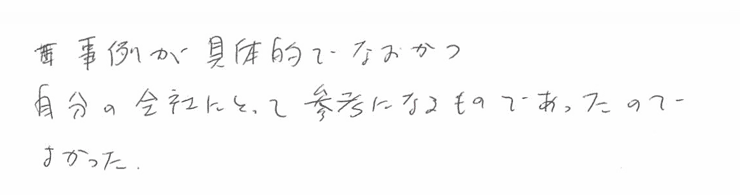 事例が具体的でなおかつ
自分の会社にとって参考になるものであったので
よかった.